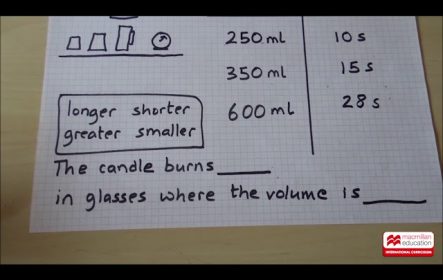 250 ml 10 s
350 ml 15 s
600 ml 28 s
longer shorter
greater smaller
The candle burns ____
in glasses where the volume is ____
macmillan
education
INTERNATIONAL CURRICULUM